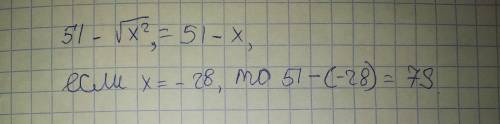 51 - √x², = 51 - x,
если x = - 28, то 51 - (-28) = 79.